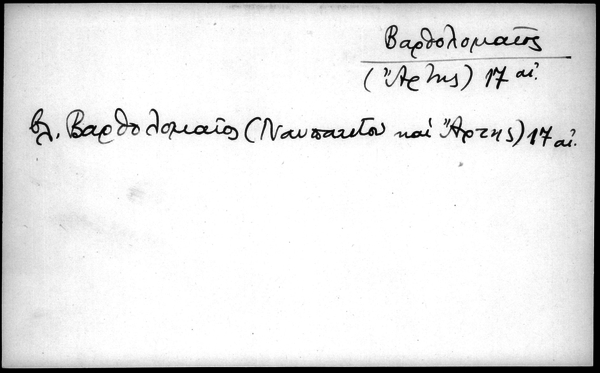 Βαρθολομαῖος
(Ἄρτης) 17 αἰ.
βλ. Βαρθολομαῖος (Ναυπάκτου καὶ Ἄρτης) 17 αἰ.